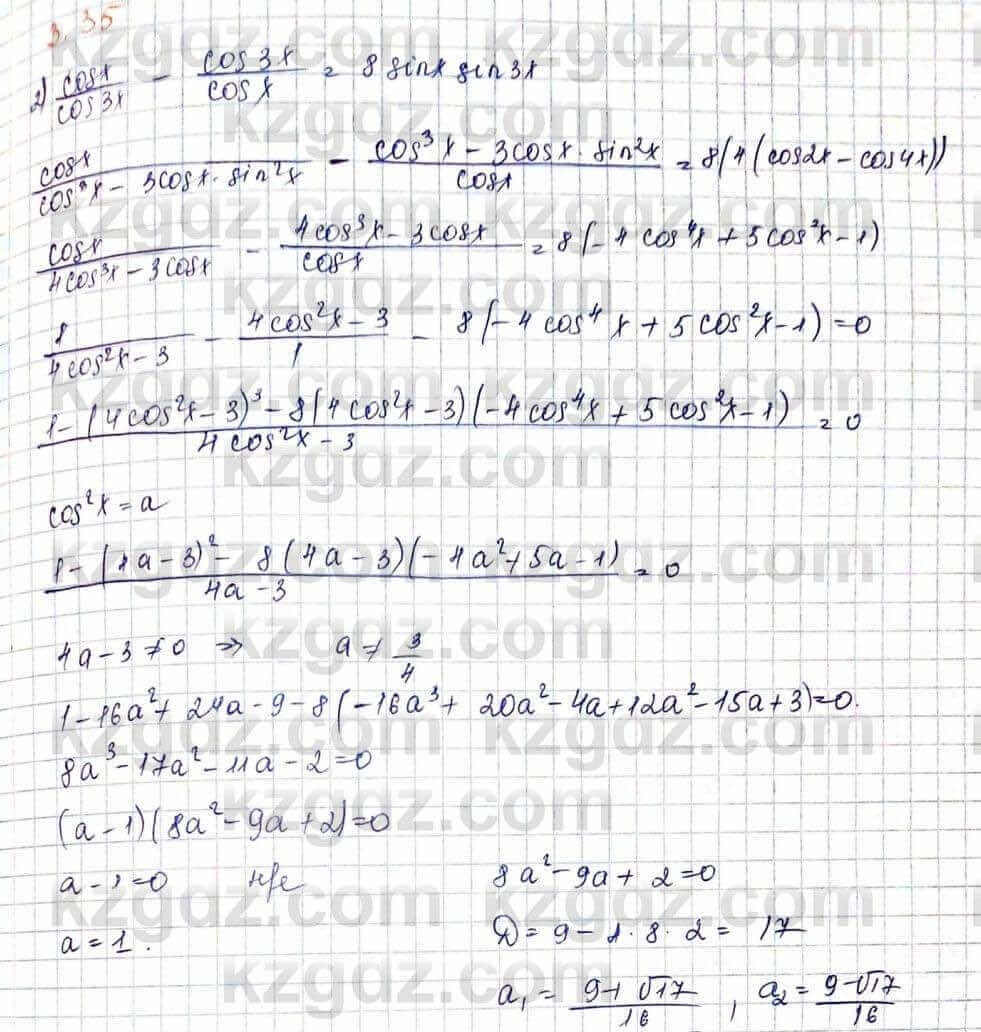 3.35
2) cosx/cos3x − cos3x/cosx = 8 sinx sin3x
cosx/(cos³x − 3cosx · sin²x) − (cos³x − 3cosx · sin²x)/cosx = 8(4(cos2x − cos4x))
cosx/(4cos³x − 3cosx) − (4cos³x − 3cosx)/cosx = 8(−4cos⁴x + 5cos²x − 1)
1/(4cos²x − 3) − (4cos²x − 3)/1 − 8(−4cos⁴x + 5cos²x − 1) = 0
(1 − (4cos²x − 3)³ − 8(4cos²x − 3)(−4cos⁴x + 5cos²x − 1))/(4cos²x − 3) = 0
cos²x = a
(1 − (4a − 3)² − 8(4a − 3)(−4a² + 5a − 1))/(4a − 3) = 0
4a − 3 ≠ 0 ⇒ a ≠ 3/4
1 − 16a² + 24a − 9 − 8(−16a³ + 20a² − 4a + 12a² − 15a + 3) = 0.
8a³ − 17a² − 11a − 2 = 0
(a − 1)(8a² − 9a + 2) = 0
a − 1 = 0 8a² − 9a + 2 = 0
a = 1. D = 9 − 1 · 8 · 2 = 17
a₁ = (9 + √17)/16 , a₂ = (9 − √17)/16
kzgdz.com